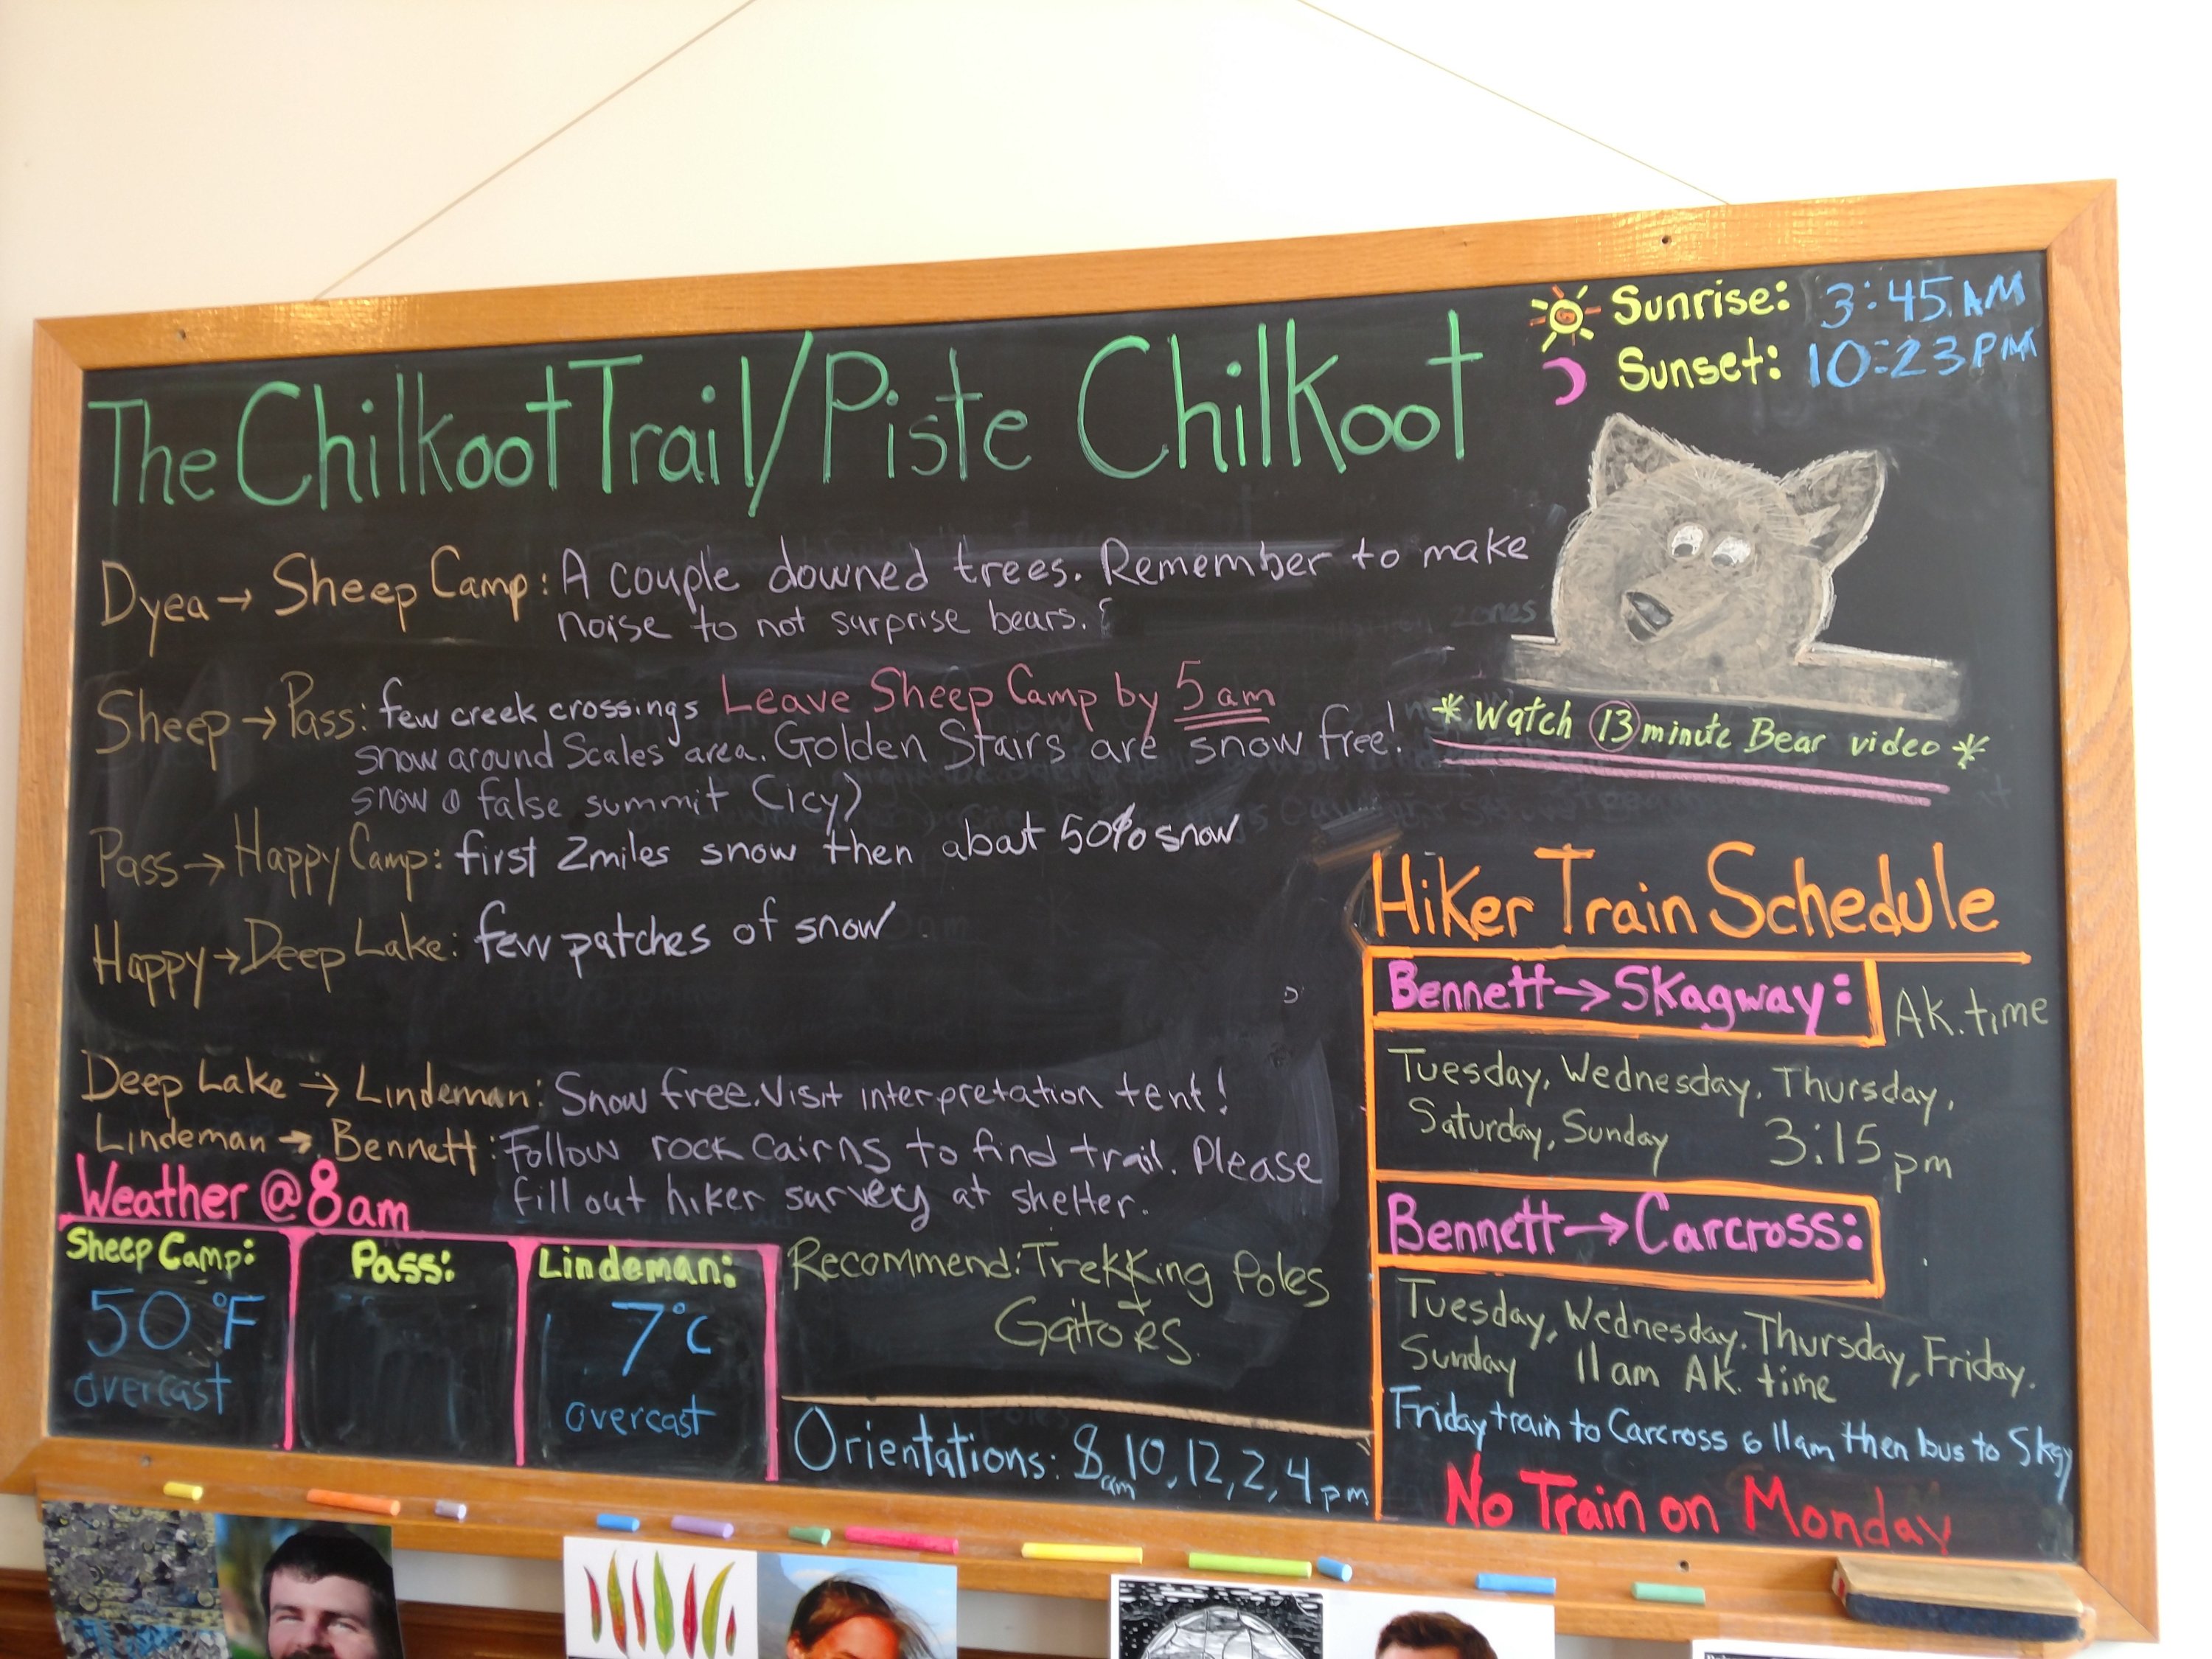 Sunrise: 3:45 AM
Sunset: 10:23 PM
The Chilkoot Trail/Piste Chilkoot
Dyea → Sheep Camp: A couple downed trees. Remember to make
noise to not surprise bears.
Sheep → Pass: few creek crossings Leave Sheep Camp by 5am
snow around Scales area. Golden Stairs are snow free!
snow @ false summit (icy)
Pass → Happy Camp: first 2miles snow then about 50% snow
Happy → Deep Lake: few patches of snow
Deep Lake → Lindeman: Snow free. Visit interpretation tent!
Lindeman → Bennett: Follow rock cairns to find trail. Please
fill out hiker survey at shelter.
* Watch 13 minute Bear video *
Weather @ 8am
Sheep Camp:
50°F
overcast
Pass:
Lindeman:
7°C
overcast
Recommend: Trekking Poles
+
Gaitors
Orientations: 8am, 10, 12, 2, 4 pm
Hiker Train Schedule
Bennett → Skagway: AK. time
Tuesday, Wednesday, Thursday,
Saturday, Sunday 3:15 pm
Bennett → Carcross:
Tuesday, Wednesday. Thursday, Friday.
Sunday 11am AK. time
Friday train to Carcross @ 11am then bus to Skgy
No Train on Monday